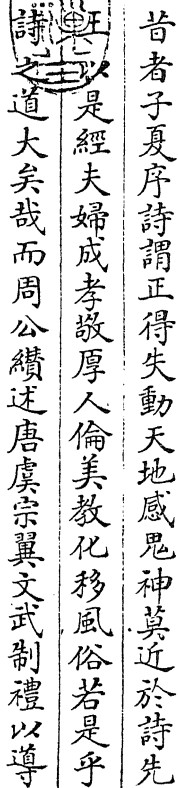 昔者子夏序詩謂正得失動天地感鬼神莫近於詩先
王以是經夫婦成孝敬厚人倫美教化移風俗若是乎
詩之道大矣哉而周公纘述唐虞宗翼文武制禮以導